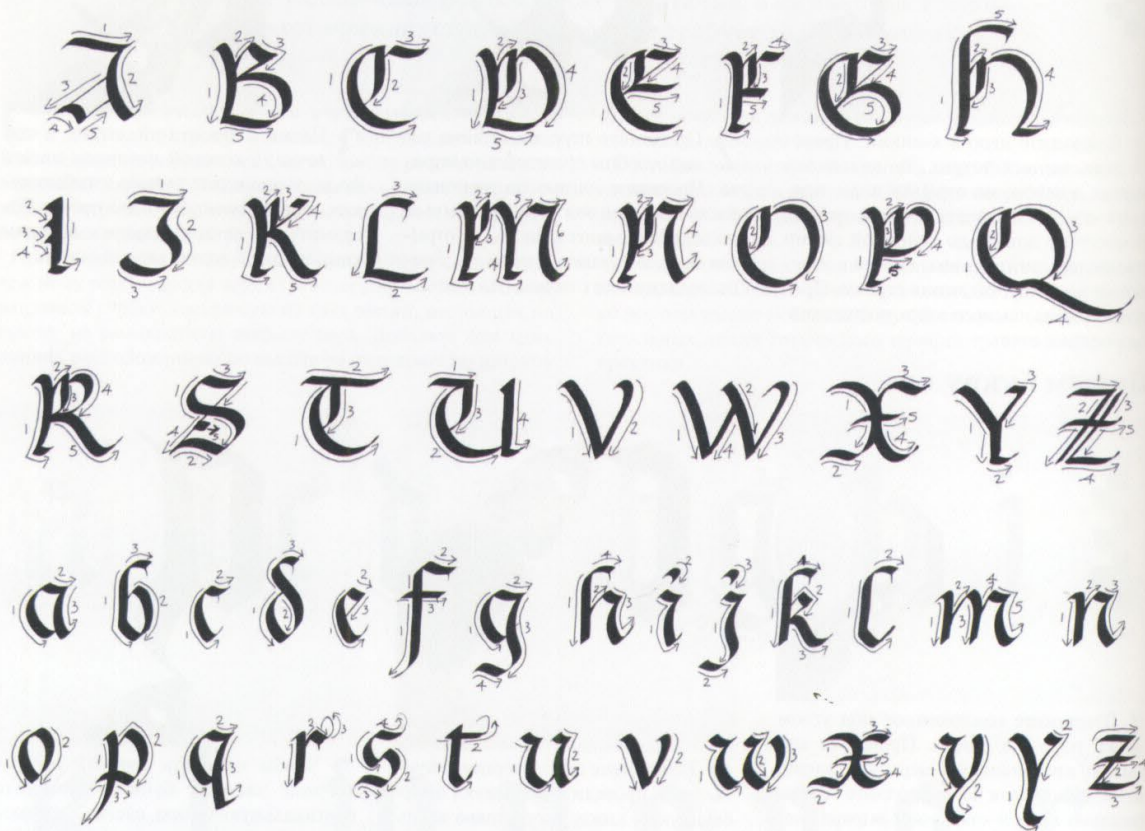 A B C D E F G H
I J K L M N O P Q
R S T U V W X Y Z
a b c d e f g h i j k l m n
o p q r s t u v w x y y z